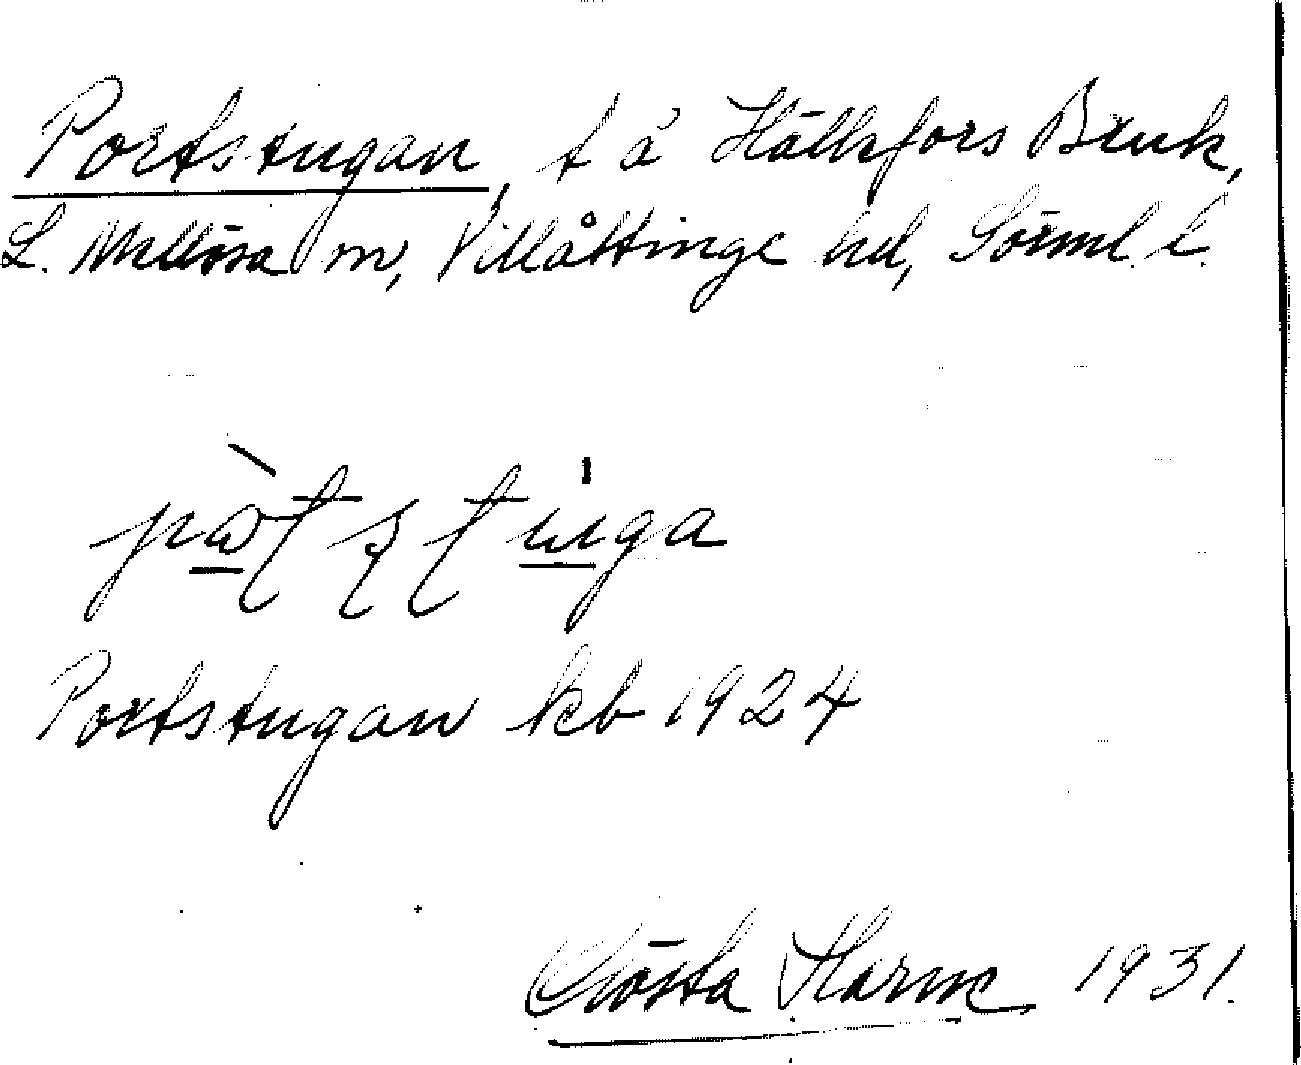 Portstugan, t å Hällefors Bruk,
L. Mellösa sn, Villåttinge hd, Sörml. l.
Portstugan kb 1924
Gösta Harne 1931.